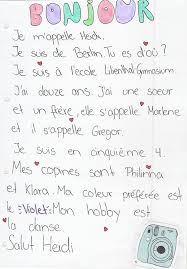 BONJOUR
Je m'appelle Heidi.
Je suis de Berlin. Tu es d'où?
Je suis à l'école Lilienthal-Gymnasium.
J'ai douze ans. J'ai une soeur
et un frère, elle s'appelle Marlene
et il s'appelle Gregor.
Je suis en cinquième 4.
Mes copines sont Philinna
et Klara. Ma coleur préférée est
le =Violet= Mon hobby est
la danse.
Salut Heidi